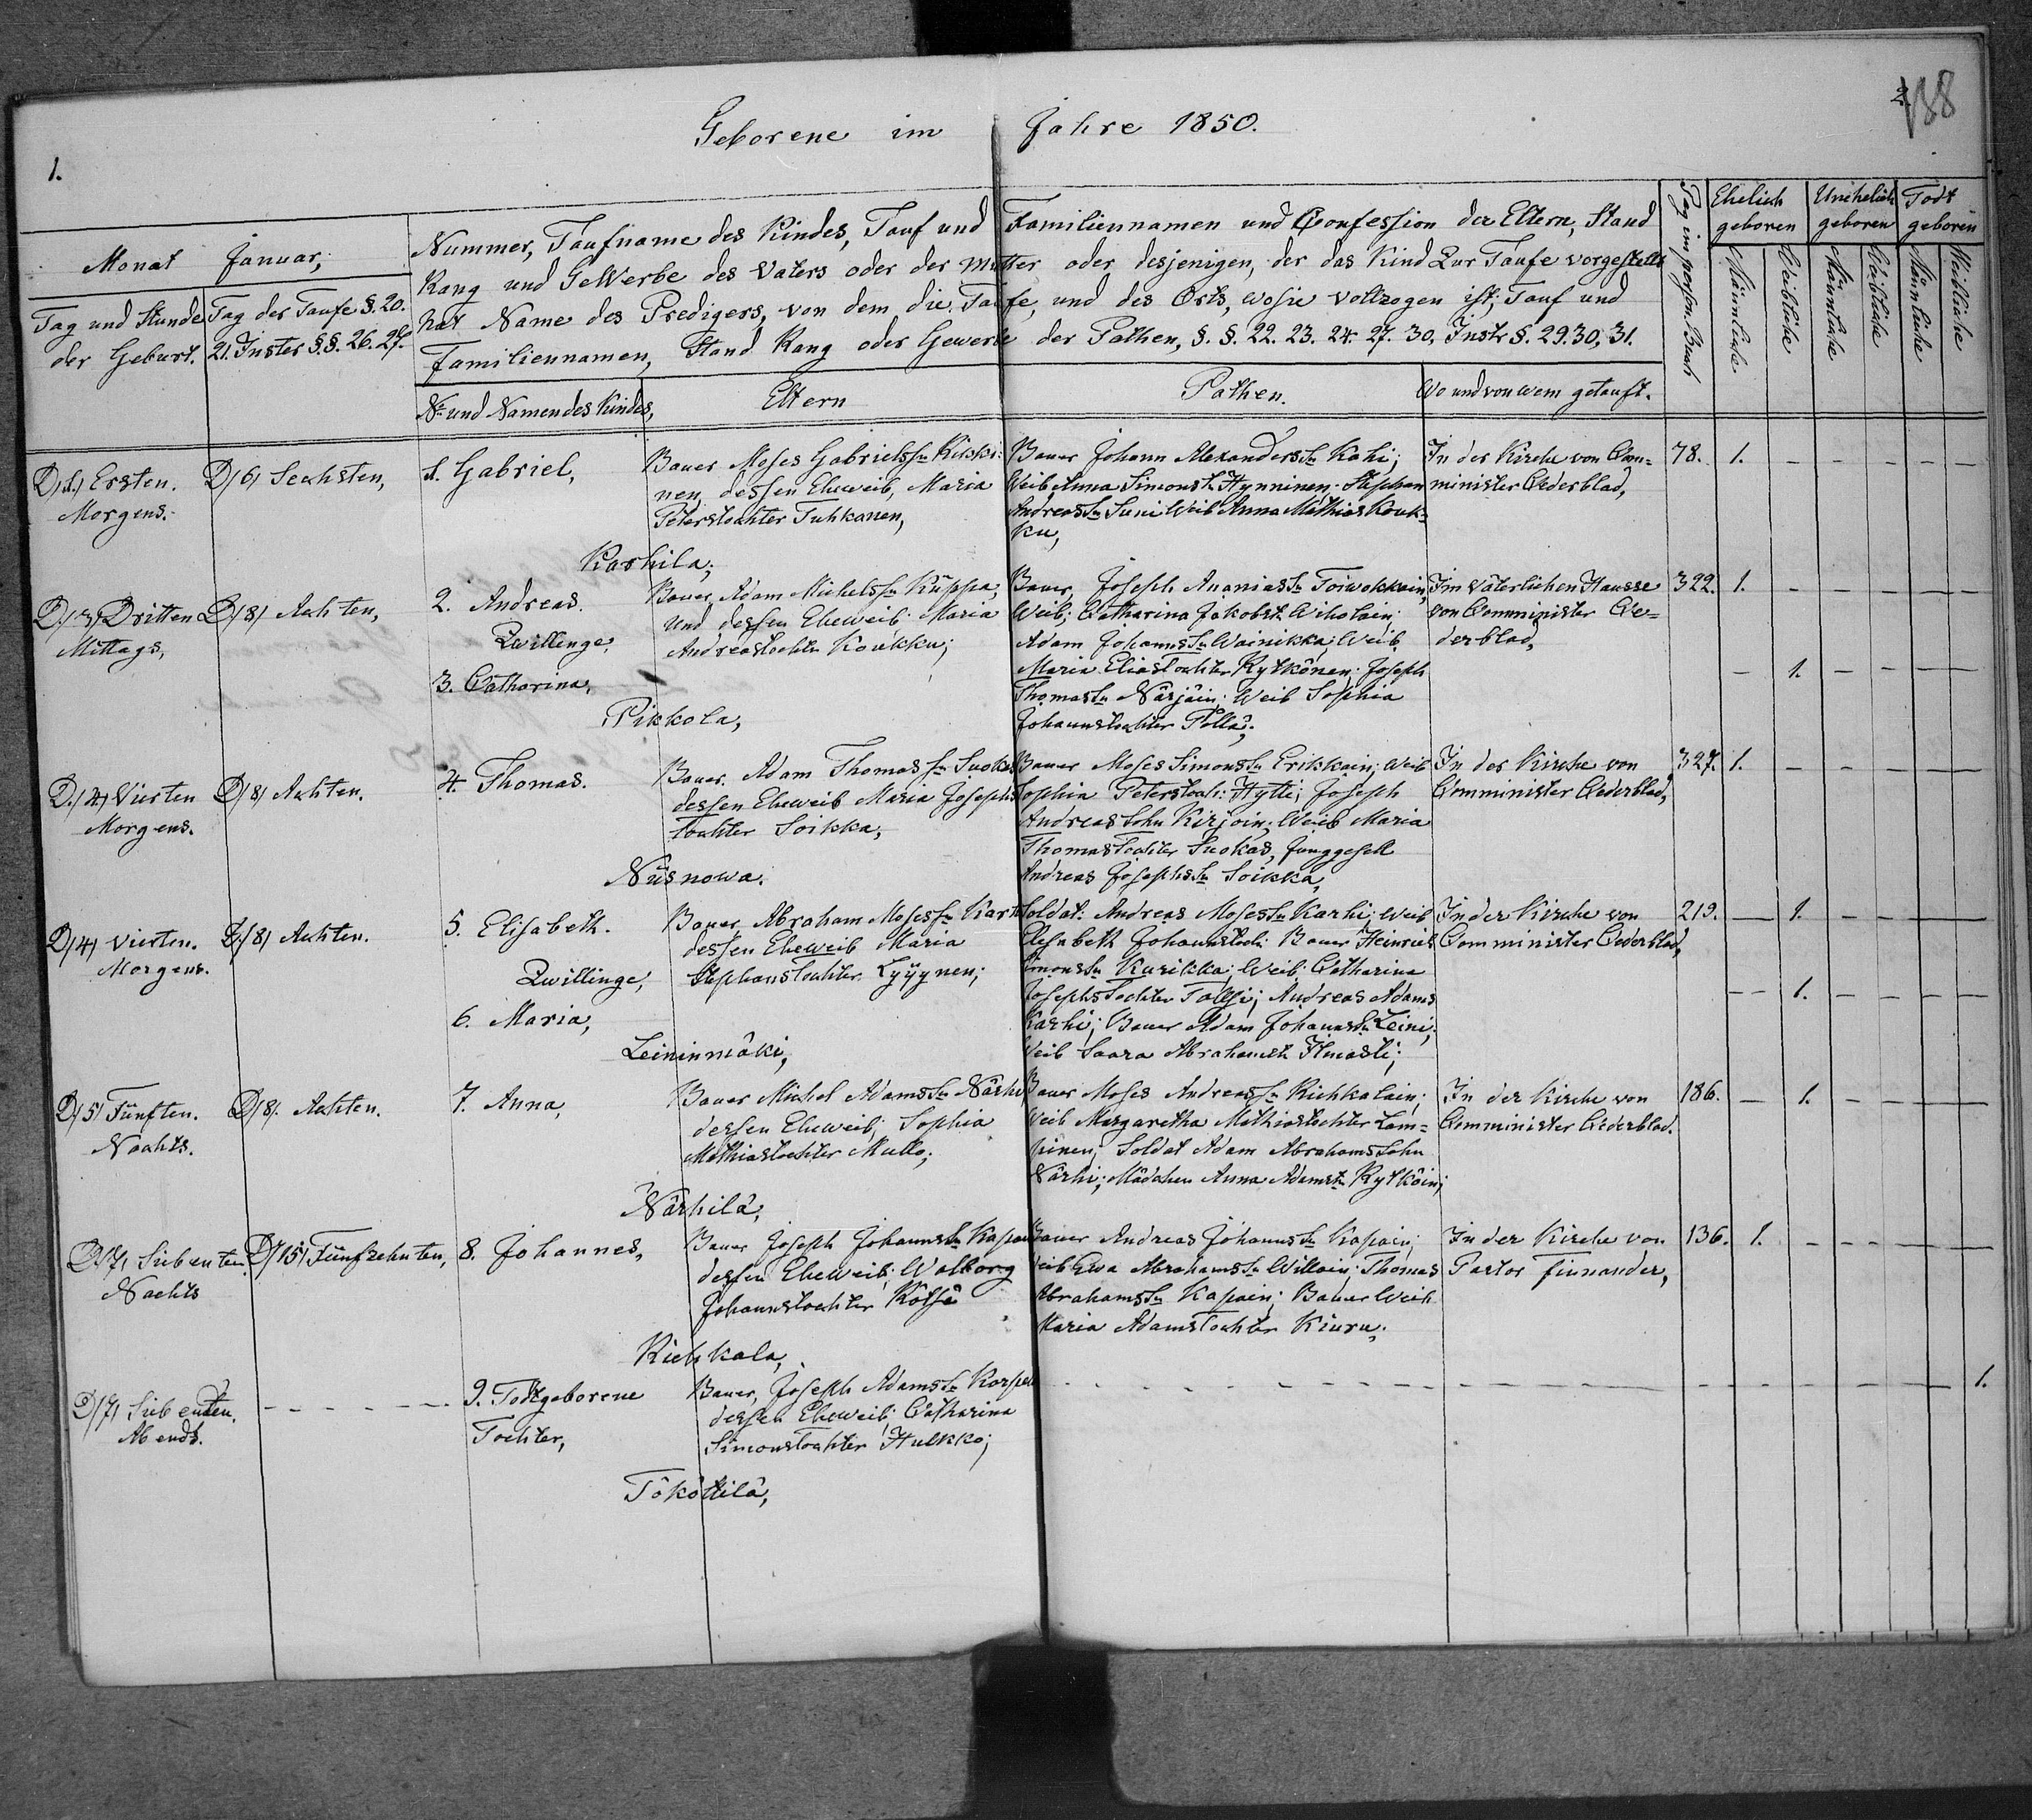 188
2.
Geborene im Jahre 1850.
1.
Monat Januar,
Tag und Stunde der Geburt.
Tag der Taufe §. 20. 21. Instr §.§. 26. 27.
Nummer, Taufname des Kindes, Tauf und Familiennamen und Confession der Eltern, Stand
Rang und Gewerbe des Vaters oder der Mutter oder desjenigen, der das Kind zur Taufe vorgestellt
hat Name des Predigers, von dem die Taufe, und des Orts, wo sie vollzogen ist; Tauf und
Familiennamen, Stand Rang oder Gewerbe der Pathen, §. §. 22. 23. 24. 27. 30. Instr §. 29. 30, 31.
No und Namen des Kindes,
Eltern
Pathen.
Wo und von wem getauft.
Pag im person. Buch
Ehelich geboren
Unehelich geboren
Todt geboren
Männliche
Weibliche
Männliche
Weibliche
Männliche
Weibliche
D. /1/ Ersten.
Morgens.
D /6/ Sechsten,
1. Gabriel,
Bauer Moses Gabrielssn Kikki-
nen, dessen Eheweib, Maria
Peterstochter Tuhkanen,
Karhila;
Bauer Johann Alexanderssn Kahi;
Weib, Anna Simonst Hynninen; Stephan
Andreassn Suni Weib Anna Mathias Kouk-
ku,
In der Kirche von Com=
minister Cederblad,
78. 1. – – – – –
D /3/ Dritten
Mittags,
D /8/ Achten,
2. Andreas.
Zwillinge,
3. Catharina,
Bauer, Adam Michelssn Küppa,
und dessen Eheweib Maria
Andreastochter Koukku;
Pikkola,
Bauer, Joseph Ananiassn Toiwokkain,
Weib; Catharina Jakobst. Wiholain;
Adam Johannssn Wainikka; Weib
Maria Eliastochter Rytkönen; Joseph
Thomassn Närjäin; Weib Sophia
Johannstochter Pölla;
Im väterlichen Hausse
von Comminister Ce=
derblad,
322. 1. – – – – –
– 1. – – – –
D. /4/ Vierten
Morgens.
D /8/ Achten.
4. Thomas.
Bauer. Adam Thomassn Suokas
dessen Eheweib Maria Josephs
tochter Soikka,
Nüsnowa.
Bauer Moses Simonssn Erikkain; Weib
Sophia Peterstoch: Hytti; Joseph
Andreas Sohn Kirjoin; Weib Maria
Thomastochter Suokas, Junggesell
Andreas Josephssn Soikka,
In der Kirche von
Comminister Cederblad,
327. 1. – – – – –
D /4/ vierten.
Morgens.
D. /8/ Achten.
5. Elisabeth.
Zwillinge,
6. Maria,
Bauer Abraham Mosessn Karhi
dessen Eheweib Maria
Stephanstochter Lyÿynen;
Leininmäki,
Soldat: Andreas Mosessn Karhi; Weib
Elisabeth Johannstoch: Bauer Heinrich
Simonssn Kurikka; Weib Catharina
Josephstochter Talsi; Andreas Adams
Karhi; Bauer Adam Johannssn Leini,
Weib Saara Abrahamst. Ilmasti;
In der Kirche von
Comminister Cederblad,
219. — 1. – – – –
– 1. – – – –
D /5/ Fünften.
Nachts.
D /8/. Achten.
7. Anna,
Bauer Michel Adamssn Närhi
dessen Eheweib, Sophia
Mathiastochter Mullo;
Närhilä,
Bauer Moses Andreassn Richkalain;
Weib Margaretha Mathiastochter Lam=
pinen; Soldat Adam Abrahams Sohn
Närhi; Mädchen Anna Adamst. Rytköin;
In der Kirche von
Comminister Cederblad.
186. — 1. – – – –
D /7/ Siebenten
Nachts
D /15/ Fünfzehnten,
8. Johannes,
Bauer Joseph Johannssn Kapan
dessen Eheweib; Walborg
Johannstochter Kötsä
Richkala,
Bauer Andreas Johannssn Kapain;
Weib Ewa Abrahamssn Willain; Thomas
Abrahamssn Kapain; Bauer Weib
Maria Adamstochter Kiuru;
In der Kirche von
Pastor Finnander,
136. 1. – – – – –
D /7/ Siebenten.
Abends.
9. Todtgeborene
Tochter,
Bauer, Joseph Adamssn Korpel
dessen Eheweib, Catharina
Simonstochter Hulkko;
Tököttilä,
1.